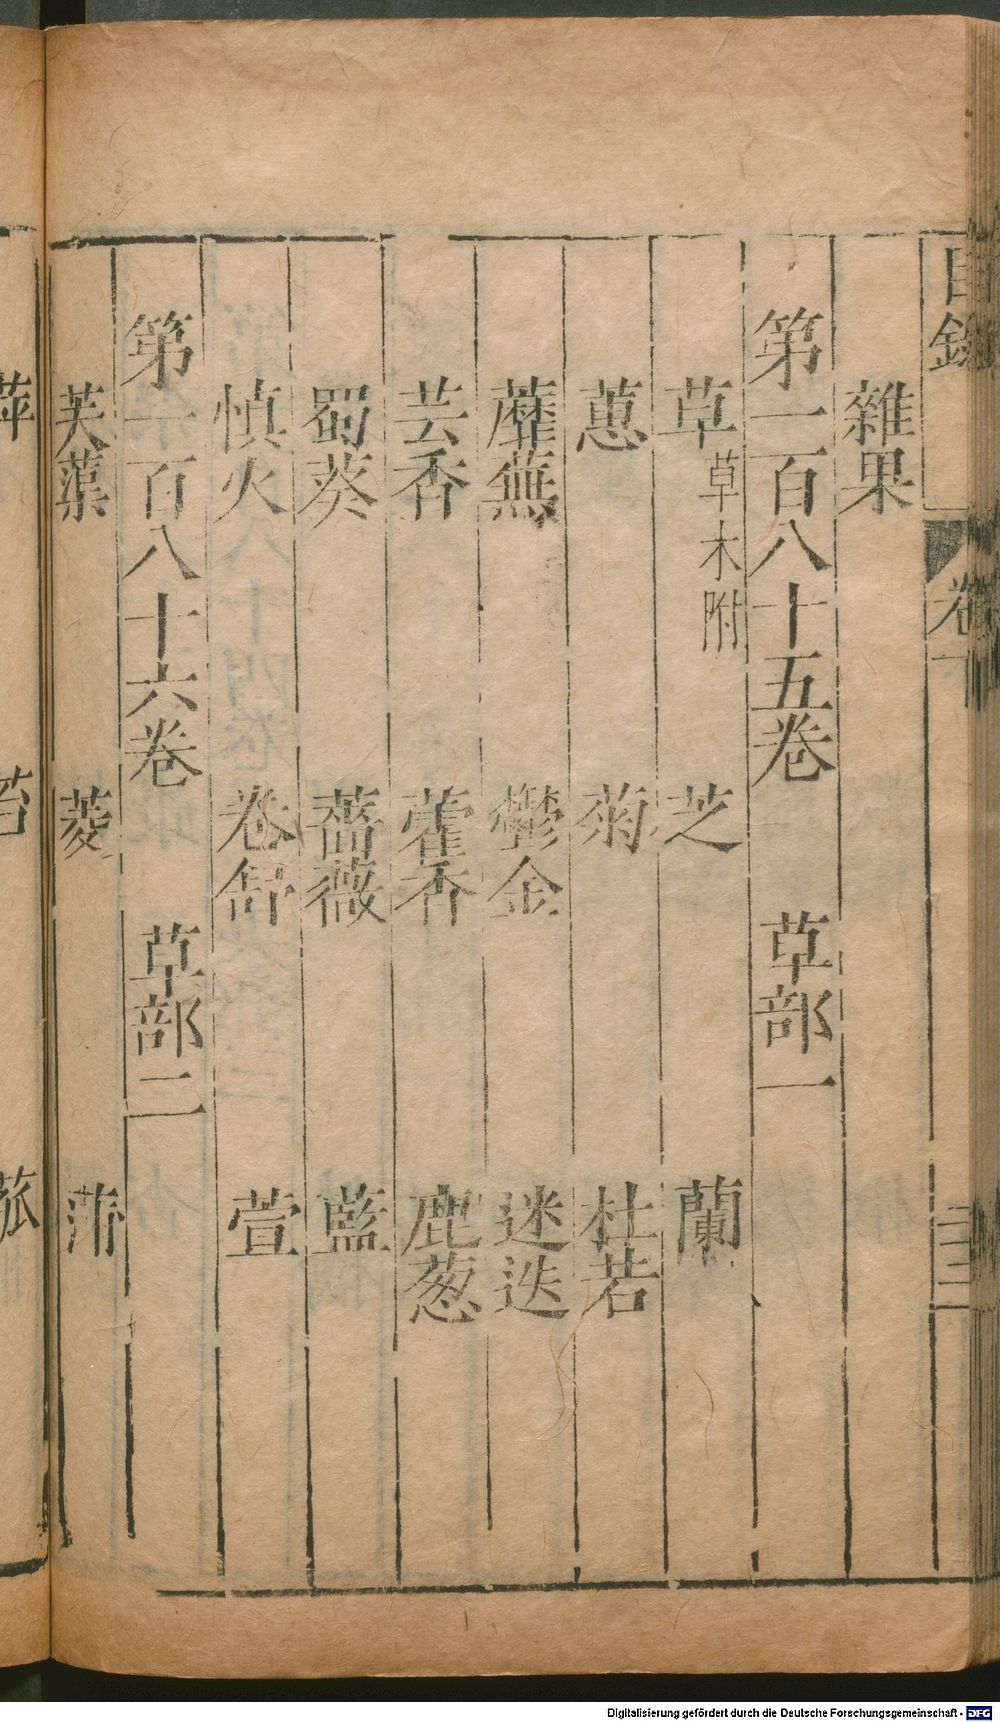 目錄 卷下 三三
雜果
第一百八十五卷 草部一
草 草木附 芝 蘭
蕙 菊 杜若
蘼蕪 鬱金 迷迭
芸香 藿香 鹿葱
蜀葵 薔薇 藍
慎火 卷舒 萱
第一百八十六卷 草部二
芙蕖 菱 蒲
萍 苔 菰
Digitalisierung gefördert durch die Deutsche Forschungsgemeinschaft - DFG